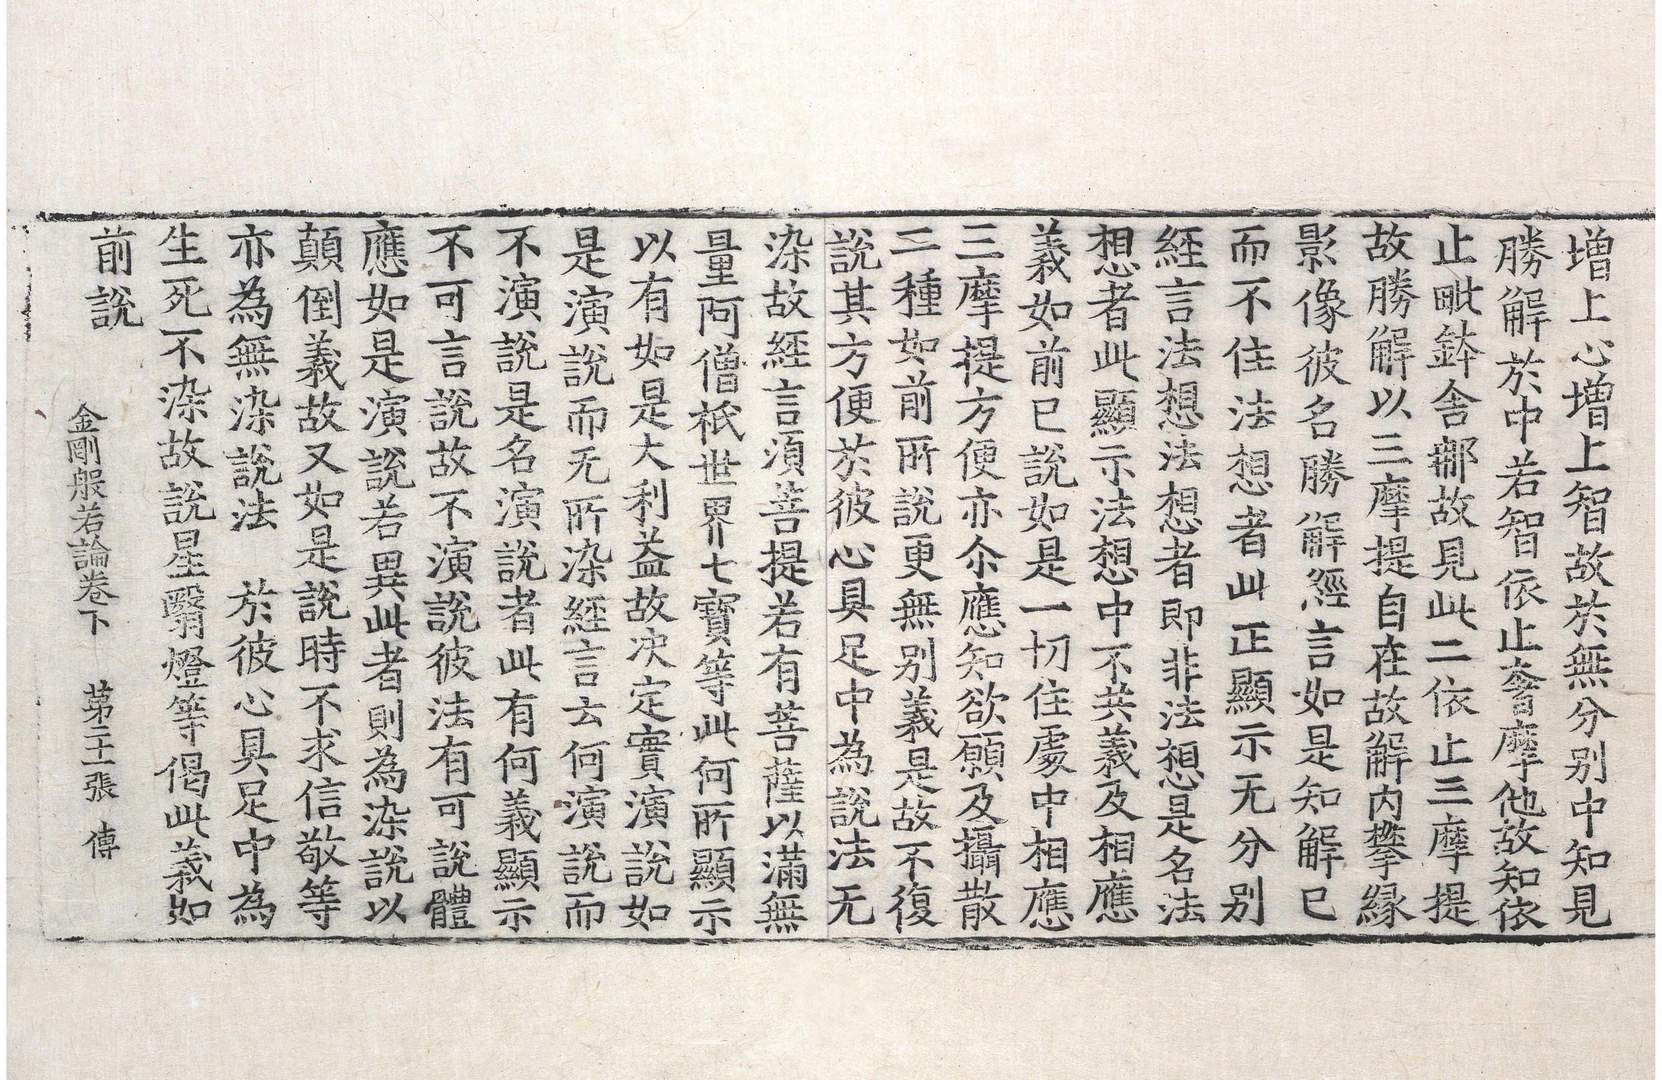 增上心增上智故於無分別中知見
勝解於中若智依止奢摩他故知依
止毗鉢舍那故見此二依止三摩提
故勝解以三摩提自在故解內攀緣
影像彼名勝解經言如是知解已
而不住法想者此正顯示无分別
經言法想法想者即非法想是名法
想者此顯示法想中不共義及相應
義如前已說如是一切住處中相應
三摩提方便亦尒應知欲願及攝散
二種如前所說更無別義是故不復
說其方便於彼心具足中為說法无
染故經言須菩提若有菩薩以滿無
量阿僧祇世界七寶等此何所顯示
以有如是大利益故决定實演說如
是演說而无所染經言云何演說而
不演說是名演說者此有何義顯示
不可言說故不演說彼法有可說體
應如是演說若異此者則為染說以
顛倒義故又如是說時不求信敬等
亦為無染說法　於彼心具足中為
生死不染故說星翳燈等偈此義如
前說
金剛般若論卷下　第二十張　傳